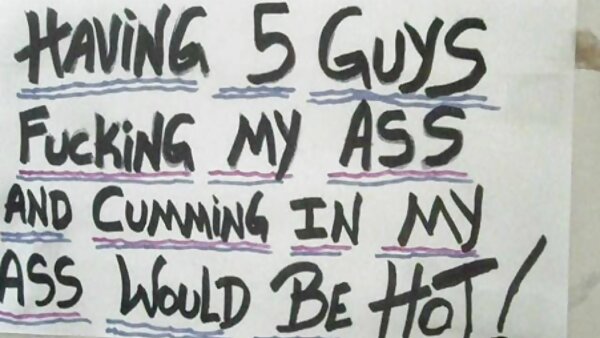 HAViNG 5 GUYS
FucKiNG MY ASS
AND CUMMiNG IN MY
ASS WOULD BE HoT!